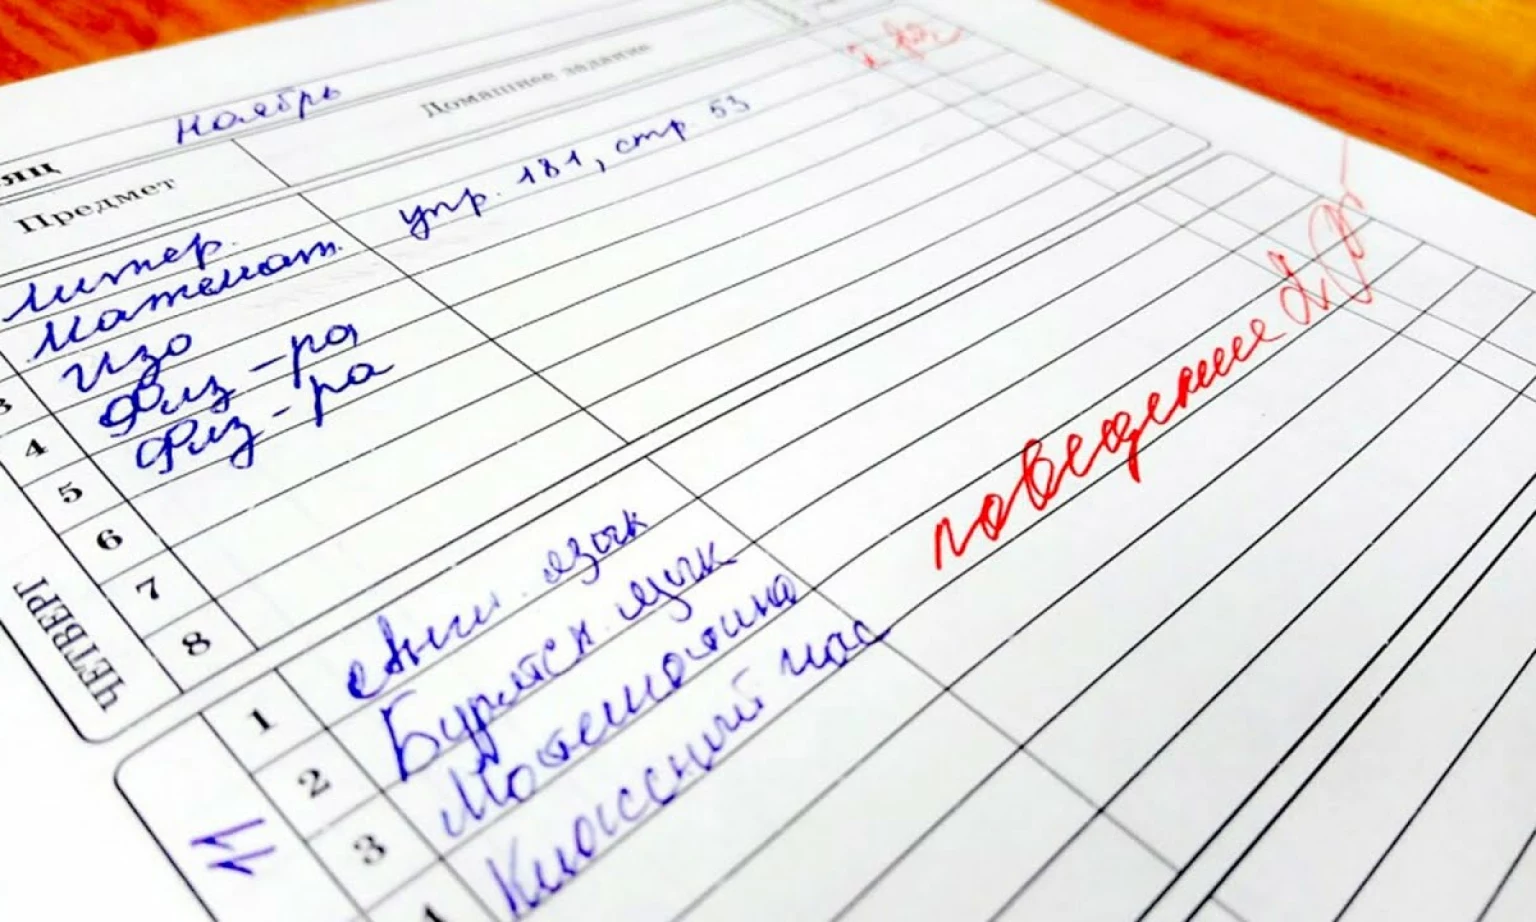 яц Ноябрь
Предмет Домашнее задание
Литер.
Математ. упр. 181, стр. 53
3 Изо
4 Физ-ра
5 Физ-ра
6
7
8
ЧЕТВЕРГ
1 Англ. язык
2 Бурятск. язык
3 Математика
4 Классный час
11
поведение 2